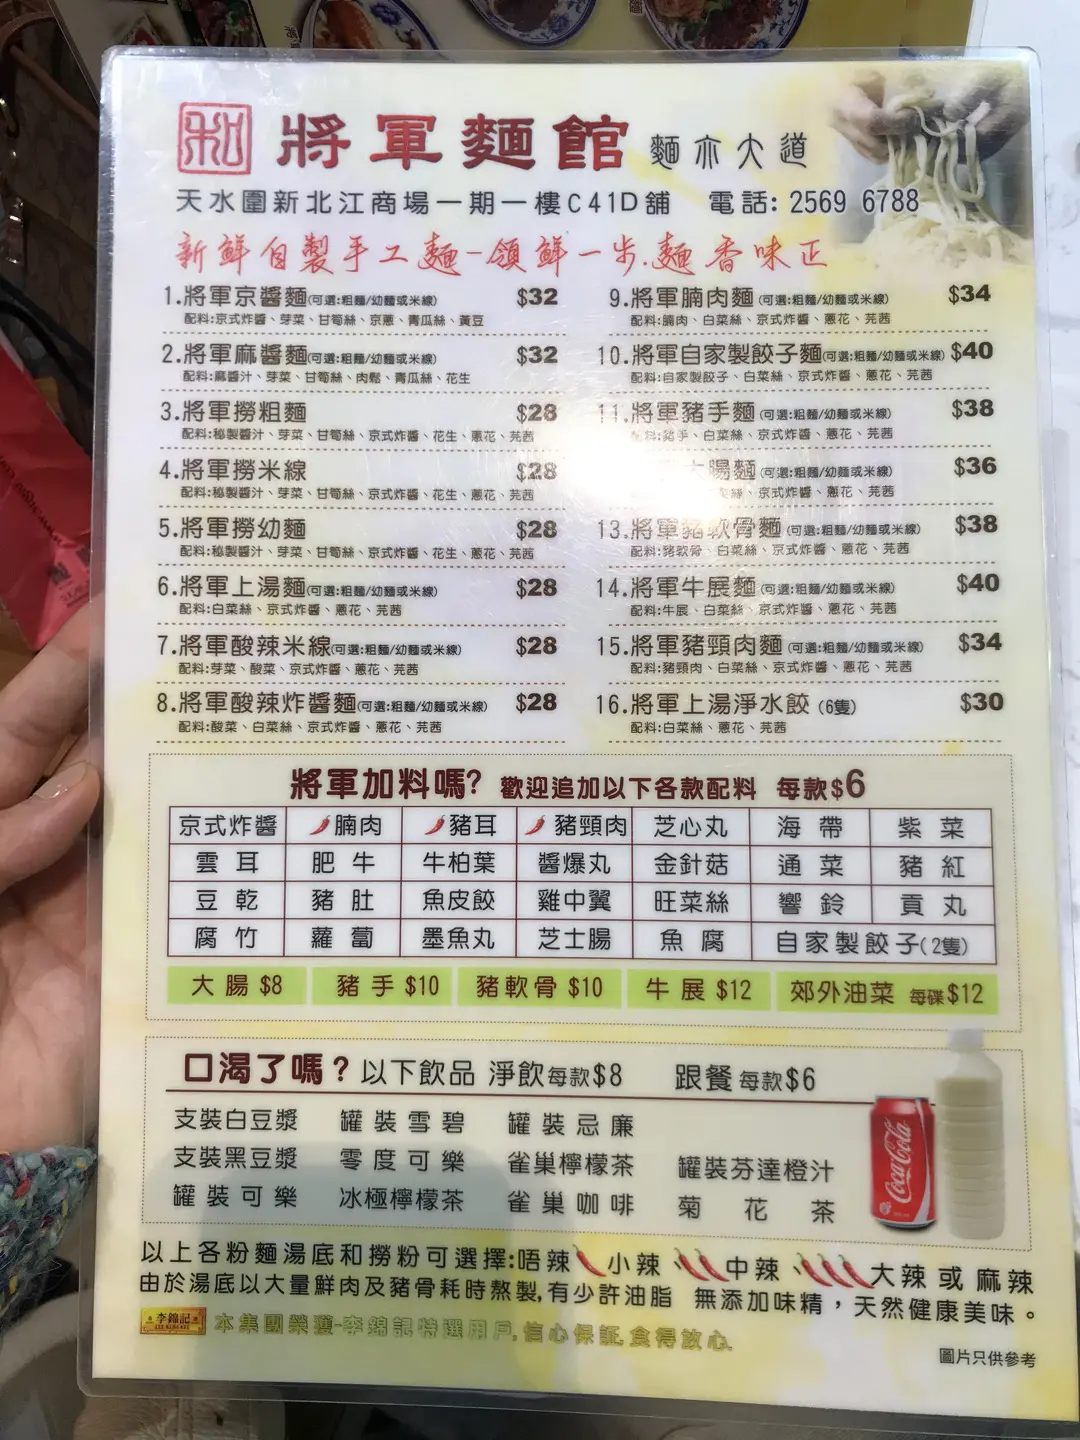 和 將軍麵館 麵亦大道
天水圍新北江商場一期一樓C41D舖 電話: 2569 6788
新鮮自製手工麵-領鮮一步.麵香味正
1.將軍京醬麵(可選:粗麵/幼麵或米線) $32
配料:京式炸醬、芽菜、甘筍絲、京蔥、青瓜絲、黃豆
2.將軍麻醬麵(可選:粗麵/幼麵或米線) $32
配料:麻醬汁、芽菜、甘筍絲、肉鬆、青瓜絲、花生
3.將軍撈粗麵 $28
配料:秘製醬汁、芽菜、甘筍絲、京式炸醬、花生、蔥花、芫茜
4.將軍撈米線 $28
配料:秘製醬汁、芽菜、甘筍絲、京式炸醬、花生、蔥花、芫茜
5.將軍撈幼麵 $28
配料:秘製醬汁、芽菜、甘筍絲、京式炸醬、花生、蔥花、芫茜
6.將軍上湯麵(可選:粗麵/幼麵或米線) $28
配料:白菜絲、京式炸醬、蔥花、芫茜
7.將軍酸辣米線(可選:粗麵/幼麵或米線) $28
配料:芽菜、酸菜、京式炸醬、蔥花、芫茜
8.將軍酸辣炸醬麵(可選:粗麵/幼麵或米線) $28
配料:酸菜、白菜絲、京式炸醬、蔥花、芫茜
9.將軍腩肉麵(可選:粗麵/幼麵或米線) $34
配料:腩肉、白菜絲、京式炸醬、蔥花、芫茜
10.將軍自家製餃子麵(可選:粗麵/幼麵或米線) $40
配料:自家製餃子、白菜絲、京式炸醬、蔥花、芫茜
11.將軍豬手麵(可選:粗麵/幼麵或米線) $38
配料:豬手、白菜絲、京式炸醬、蔥花、芫茜
大腸麵(可選:粗麵/幼麵或米線) $36
絲、京式炸醬、蔥花、芫茜
13.將軍豬軟骨麵(可選:粗麵/幼麵或米線) $38
配料:豬軟骨、白菜絲、京式炸醬、蔥花、芫茜
14.將軍牛展麵(可選:粗麵/幼麵或米線) $40
配料:牛展、白菜絲、京式炸醬、蔥花、芫茜
15.將軍豬頸肉麵(可選:粗麵/幼麵或米線) $34
配料:豬頸肉、白菜絲、京式炸醬、蔥花、芫茜
16.將軍上湯淨水餃(6隻) $30
配料:白菜絲、蔥花、芫茜
將軍加料嗎? 歡迎追加以下各款配料 每款$6
京式炸醬 腩肉 豬耳 豬頸肉 芝心丸 海帶 紫菜
雲耳 肥牛 牛柏葉 醬爆丸 金針菇 通菜 豬紅
豆乾 豬肚 魚皮餃 雞中翼 旺菜絲 響鈴 貢丸
腐竹 蘿蔔 墨魚丸 芝士腸 魚腐 自家製餃子(2隻)
大腸 $8 豬手 $10 豬軟骨 $10 牛展 $12 郊外油菜 每碟$12
口渴了嗎?以下飲品 淨飲每款$8 跟餐每款$6
支裝白豆漿 罐裝雪碧 罐裝忌廉
支裝黑豆漿 零度可樂 雀巢檸檬茶 罐裝芬達橙汁
罐裝可樂 冰極檸檬茶 雀巢咖啡 菊花茶
Coca-Cola
以上各粉麵湯底和撈粉可選擇:唔辣 小辣、中辣、大辣或麻辣
由於湯底以大量鮮肉及豬骨耗時熬製,有少許油脂 無添加味精,天然健康美味。
李錦記 本集團榮獲-李錦記特選用戶,信心保証,食得放心.
圖片只供參考